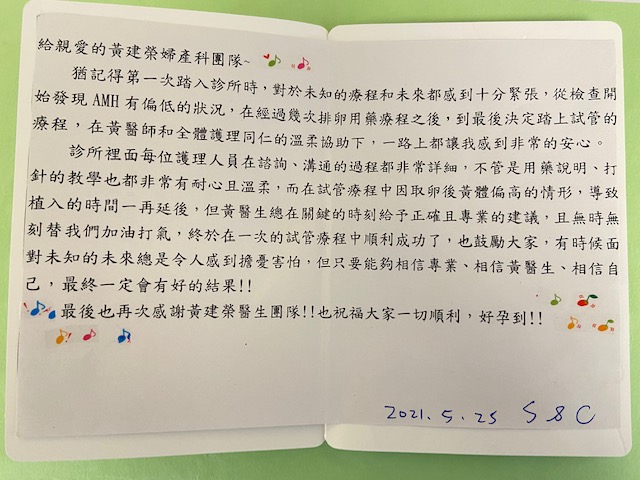 給親愛的黃建榮婦產科團隊~
猶記得第一次踏入診所時，對於未知的療程和未來都感到十分緊張，從檢查開
始發現 AMH 有偏低的狀況，在經過幾次排卵用藥療程之後，到最後決定踏上試管的
療程，在黃醫師和全體護理同仁的溫柔協助下，一路上都讓我感到非常的安心。
診所裡面每位護理人員在諮詢、溝通的過程都非常詳細，不管是用藥說明、打
針的教學也都非常有耐心且溫柔，而在試管療程中因取卵後黃體偏高的情形，導致
植入的時間一再延後，但黃醫生總在關鍵的時刻給予正確且專業的建議，且無時無
刻替我們加油打氣，終於在一次的試管療程中順利成功了，也鼓勵大家，有時候面
對未知的未來總是令人感到擔憂害怕，但只要能夠相信專業、相信黃醫生、相信自
己，最終一定會有好的結果!!
最後也再次感謝黃建榮醫生團隊!!也祝福大家一切順利，好孕到!!
2021.5.25 S&C